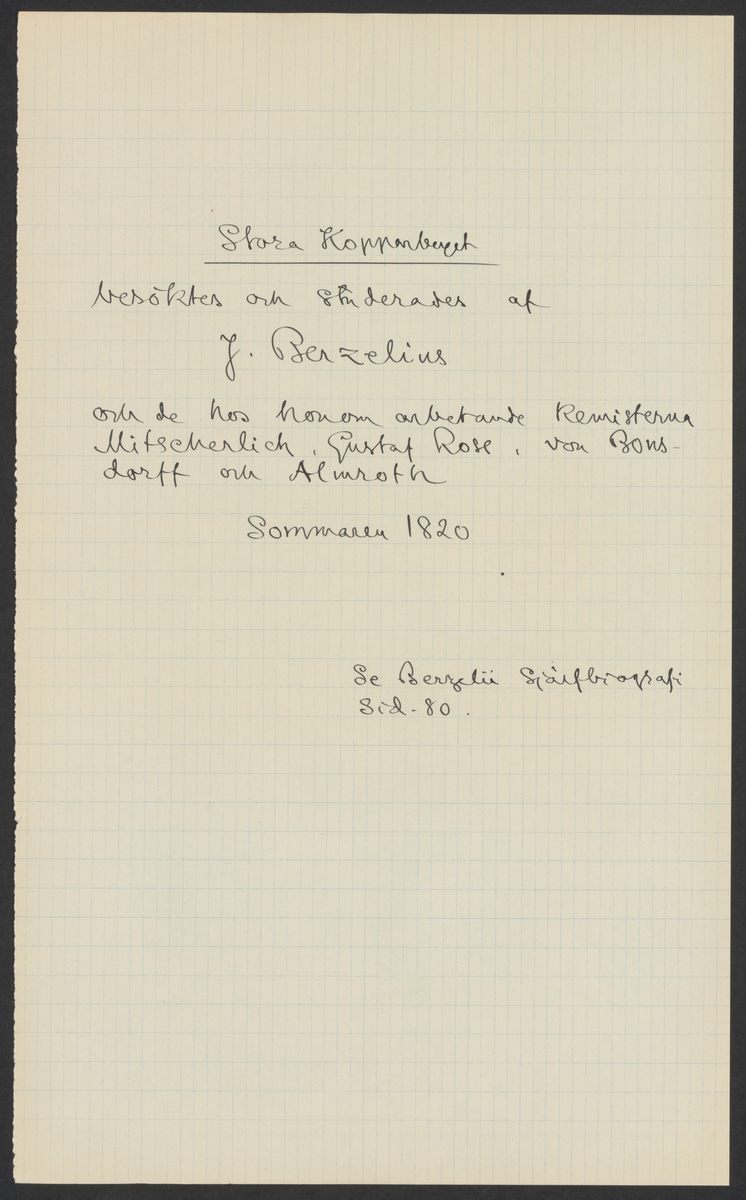 Stora Kopparberget
besöktes och studerades af
J. Berzelius
och de hos honom arbetande Kemisterna
Mitscherlich, Gustaf Rose, von Bons-
dorff och Almroth
Sommaren 1820
Se Berzelii Sjelfbiografi
Sid. 80.